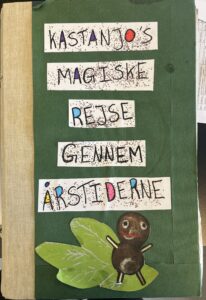 KASTANJO'S
MAGISKE
REJSE
GENNEM
ÅRSTIDERNE